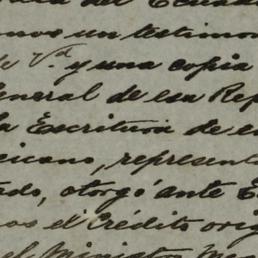 del Ecuad
mos un testimon
de V.d y una copia
eneral de esa Rep
la Escritura de e
eicano, represent
tado, otorgó ante E
nos el Crédito orig
el Ministro Me